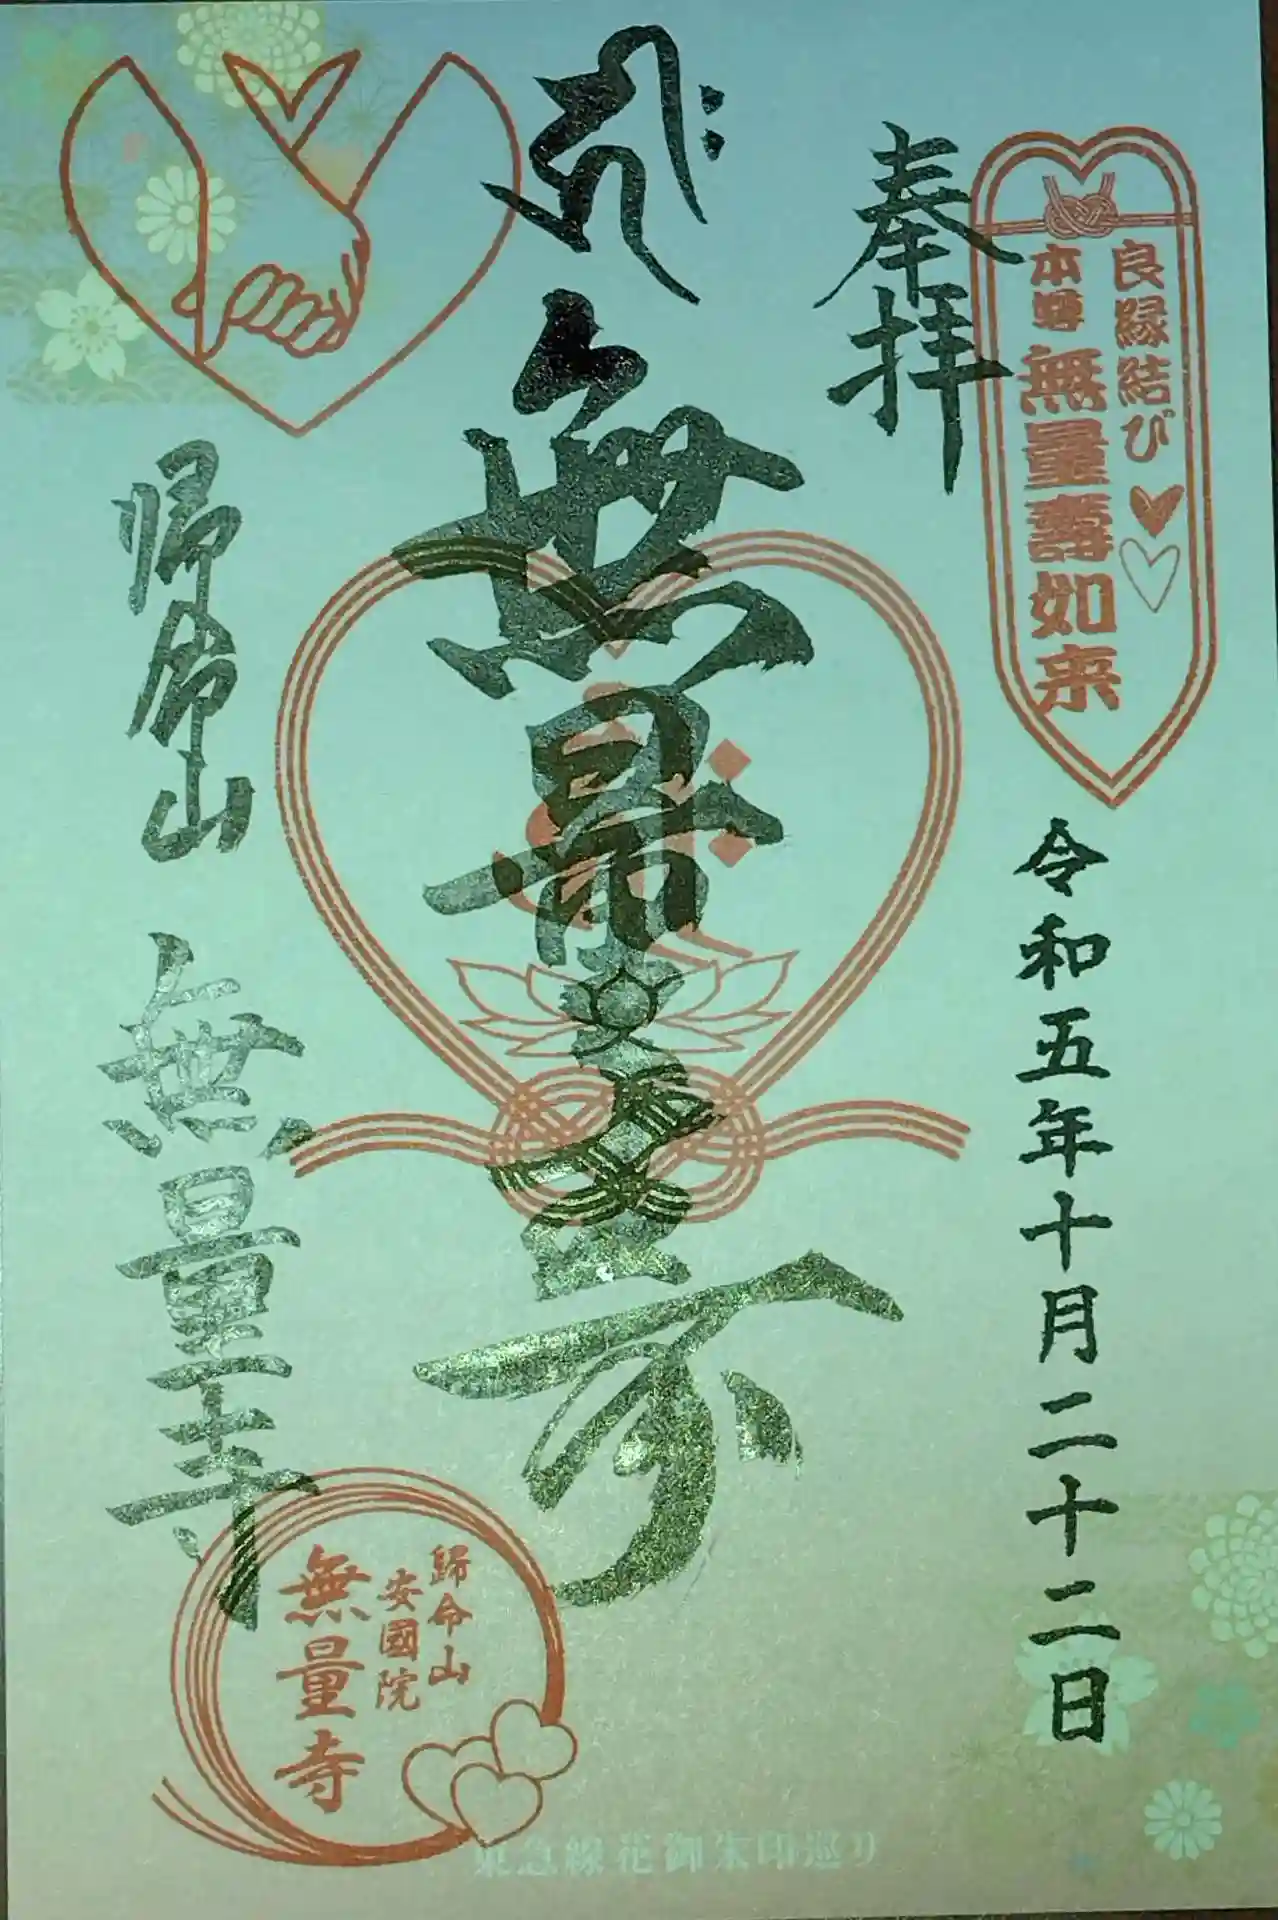 良縁結び
本尊 無量壽如来
奉拝
令和五年十月二十二日
無量壽
帰命山 無量寺
歸命山
安國院
無量寺
東急線花御朱印巡り